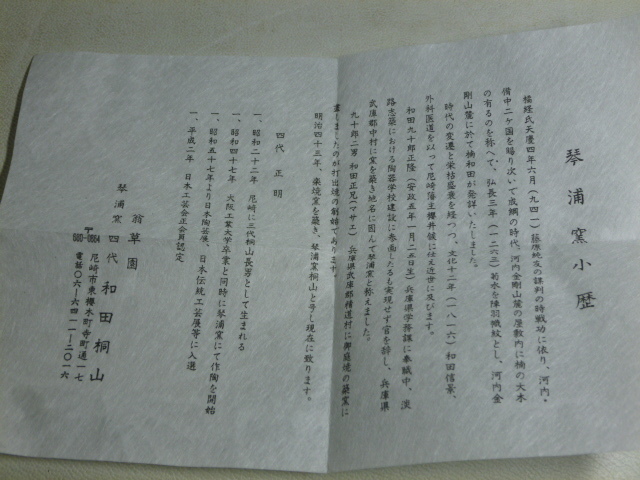 琴浦窯小歴
橘経氏天慶四年六月(九四一)藤原純友の謀判の時戦功に依り、河内・
備中二ヶ国を賜り次いで成綱の時代、河内金剛山麓の屋敷内に楠の大木
の有るのを称へて、弘長三年(一二六三)菊水を陣羽織紋とし、河内金
剛山麓に於て楠和田が発詳いたしました。
時代の変遷と栄枯盛衰を経つつ、文化十二年(一八一六)和田信景、
外科医道を以って尼崎藩主櫻井候に仕え近世に及びます。
和田九十郎正隆(安政五年一月二五生)兵庫県学務課に奉職中、淡
路志築における陶器学校建設に参画したるも実現せず官を辞し、兵庫県
武庫郡中村に窯を築き地名に因んで琴浦窯と称えました。
九十郎二男 和田正兄(マサエ) 兵庫県武庫郡精道村に御庭焼の築窯に
着しましたのが打出焼の創始であります。
明治四十三年、楽焼窯を築き、琴浦窯桐山と号し現在に致ります。
四代 正明
一、昭和二十二年 尼崎に三代桐山長男として生まれる
一、昭和四十七年 大阪工業大学卒業と同時に琴浦窯にて作陶を開始
一、昭和五十七年より日本陶芸展、日本伝統工芸展等に入選
一、平成二年 日本工芸会正会員認定
翁草園
琴浦窯 四代 和田桐山
尼崎市東櫻木町寺町通一七
電話〇六ー六四一一ー二〇一六